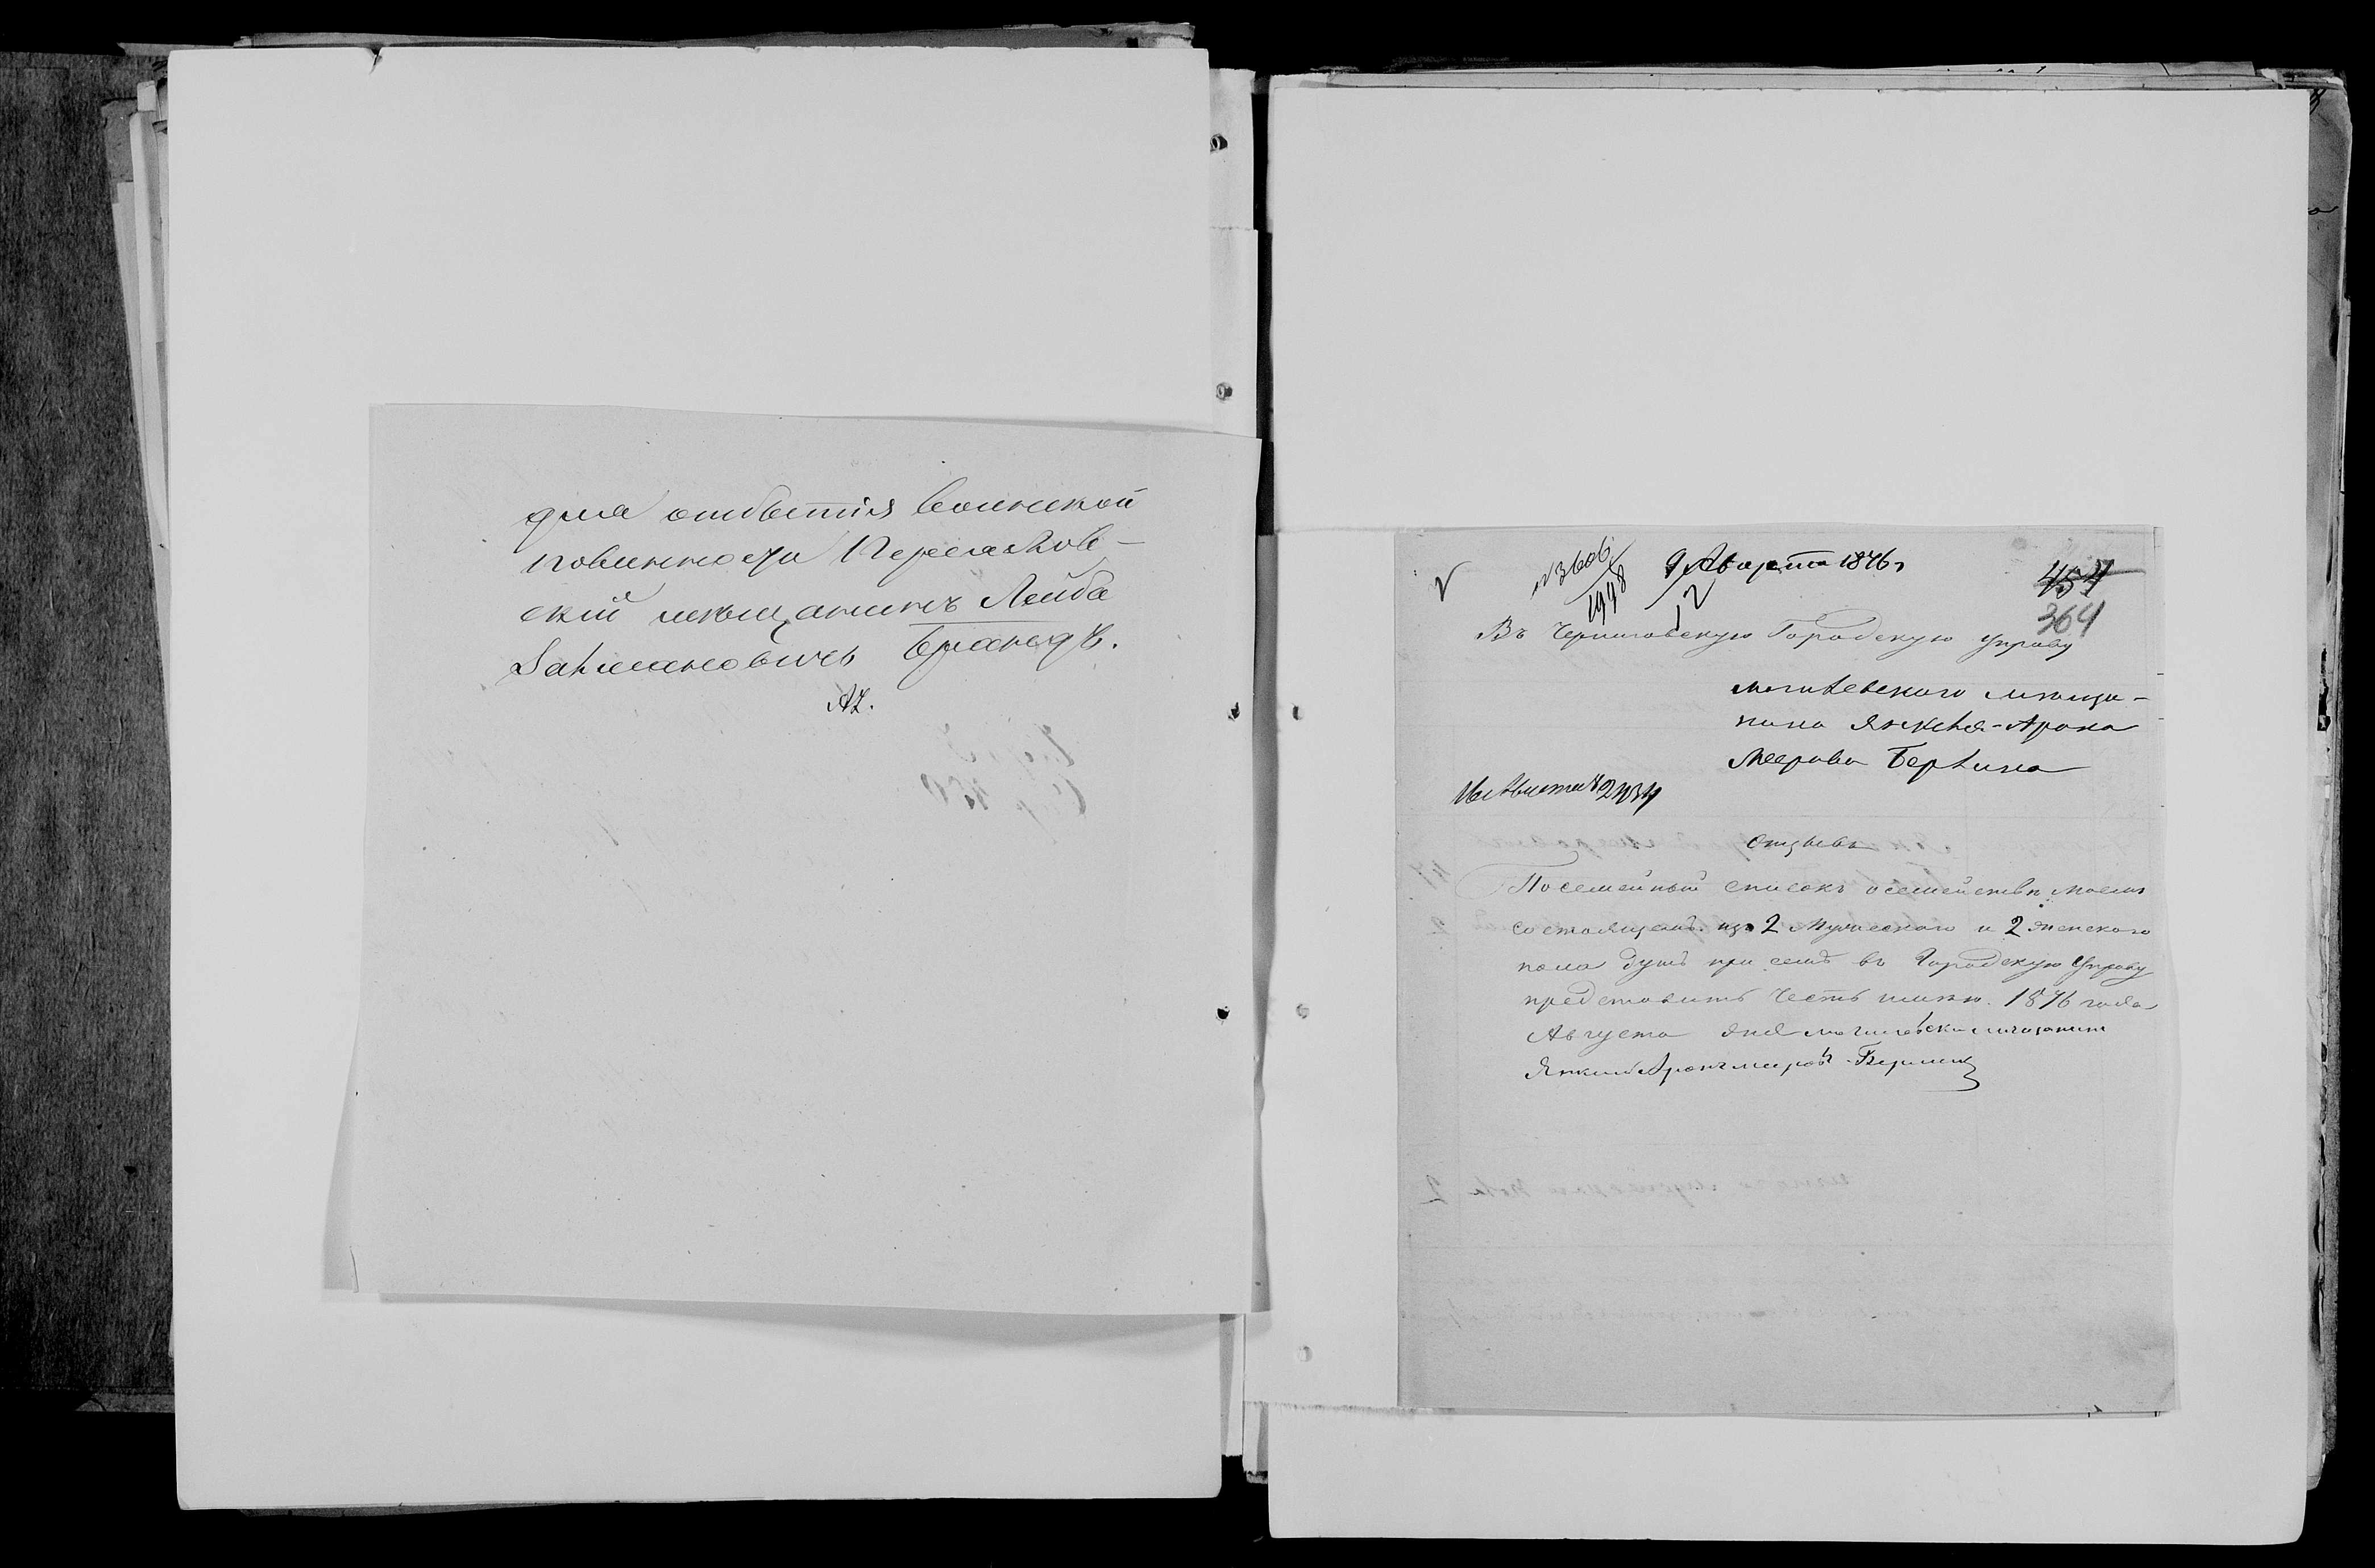 для отбытія воинской
повинности Переяслов-
скій мѣщанинъ Лейба
Залмановичъ Брандъ.
№ 3606
1998
9 Августа 1876 г
12
454
364
Въ Черниговскую Городскую Управу
могилевского мѣща-
нина Янкеля-Арона
Меерова Берлина
отзывъ
Посемейный списокъ о семействѣ моемъ
состоящемъ изъ 2 мужескаго и 2 женскаго
пола душъ при семъ въ Городскую Управу
представить честь имѣю. 1876 года
Августа дня могилевскій мѣщанинъ
Янкель Аронъ Мееровъ Берлинъ